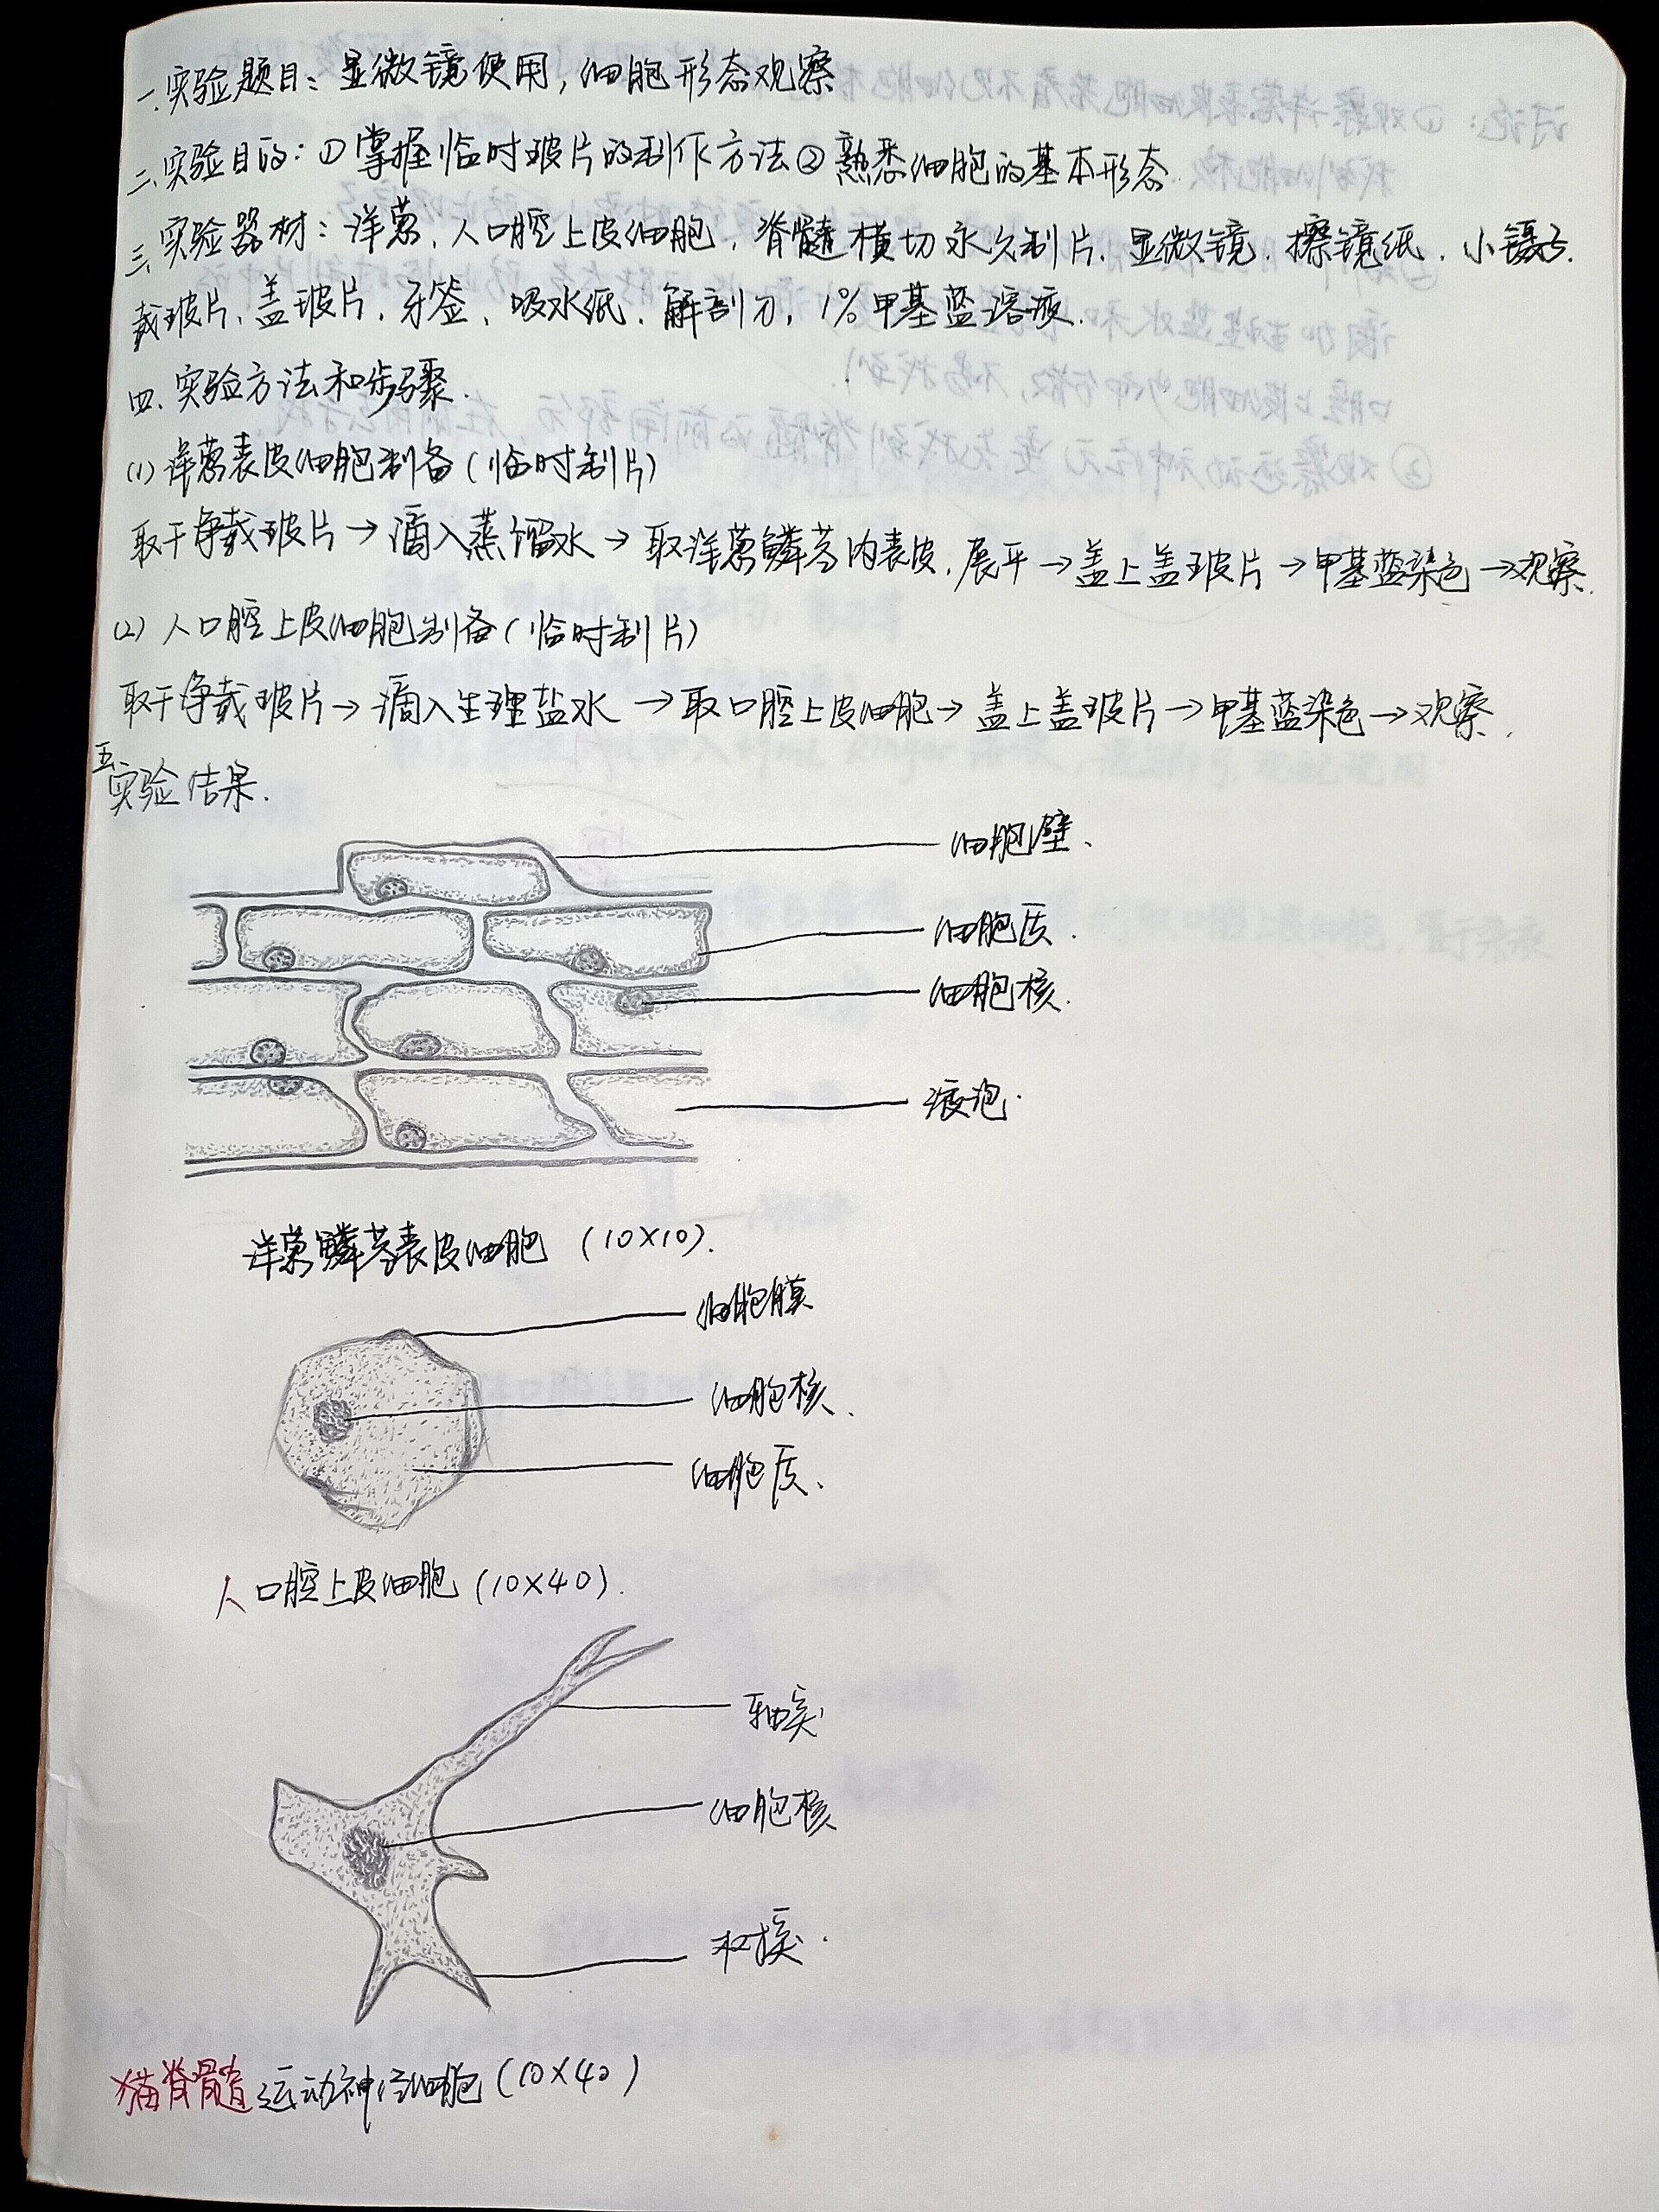 一.实验题目：显微镜使用，细胞形态观察
二.实验目的：①掌握临时玻片的制作方法②熟悉细胞的基本形态
三.实验器材：洋葱、人口腔上皮细胞、脊髓横切永久制片、显微镜、擦镜纸、小镊子、
载玻片、盖玻片、牙签、吸水纸、解剖刀、1%甲基蓝溶液.
四.实验方法和步骤.
(1) 洋葱表皮细胞制备(临时制片)
取干净载玻片→滴入蒸馏水→取洋葱鳞茎内表皮,展平→盖上盖玻片→甲基蓝染色→观察.
(2) 人口腔上皮细胞制备(临时制片)
取干净载玻片→滴入生理盐水→取口腔上皮细胞→盖上盖玻片→甲基蓝染色→观察.
五.实验结果.
细胞壁.
细胞质.
细胞核.
液泡.
洋葱鳞茎表皮细胞 (10×10).
细胞膜
细胞核.
细胞质.
人口腔上皮细胞(10×40).
轴突
细胞核
树突.
猫脊髓运动神经细胞(10×40)